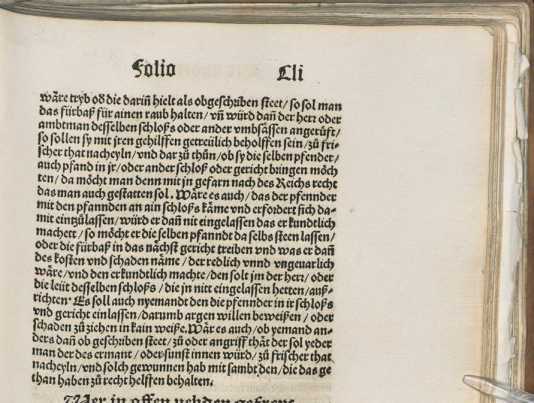 Folio Cli
wäre tryb oð die dariñ hielt als obgeschriben steet/ so sol man
das fürbaß für ainen raub halten/ vñ würd dañ der herꝛ oder
ambtman desselben schloß oder ander vmbsässen angerüft/
so sollen sy mit jren gehilffen getreülich beholffen sein/ zů fri-
scher that nacheyln/ vnd dar zů thůn/ ob sy die selben pfender/
auch pfand in jr/ oder ander schloß oder gericht bringen möch
ten/ da möcht man denn mit jn gefarn nach des Reichs recht
das man auch gestatten sol. Wäre es auch/ das der pfennder
mit den pfannden an ain schloß käme vnd erfordert sich da-
mit einzůlassen/ würd er dañ nit eingelassen das er kundtlich
machett/ so möcht er die selben pfanndt da selbs steen lassen/
oder die fürbaß in das nächst gericht treiben vnd was er dañ
des kosten vnd schaden näme/ der redlich vnnd vngeuarlich
wäre/ vnd den erkundtlich machte/ den solt jm der herꝛ/ oder
die leüt desselben schloß/ die jn nitt eingelassen hetten/ auß-
richten. Es soll auch nyemandt den die pfennder in ir schloß
vnd gericht einlassen/ darumb argen willen beweißen/ oder
schaden zů ziehen in kain weiße. Wär es auch/ ob yemand an-
ders dañ ob geschriben steet/ zů oder angriff thät der sol yeder
man der des ermant/ oder sunst innen würd/ zů frischer that
nacheyln/ vnd solch gewunnen hab mit sambt den/ die das ge
than haben zů recht helffen behalten.
Wer in offen